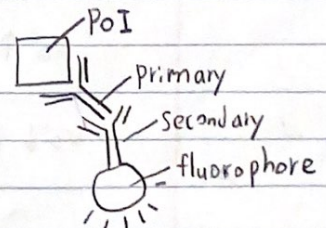 PoI
primary
secondary
fluorophore